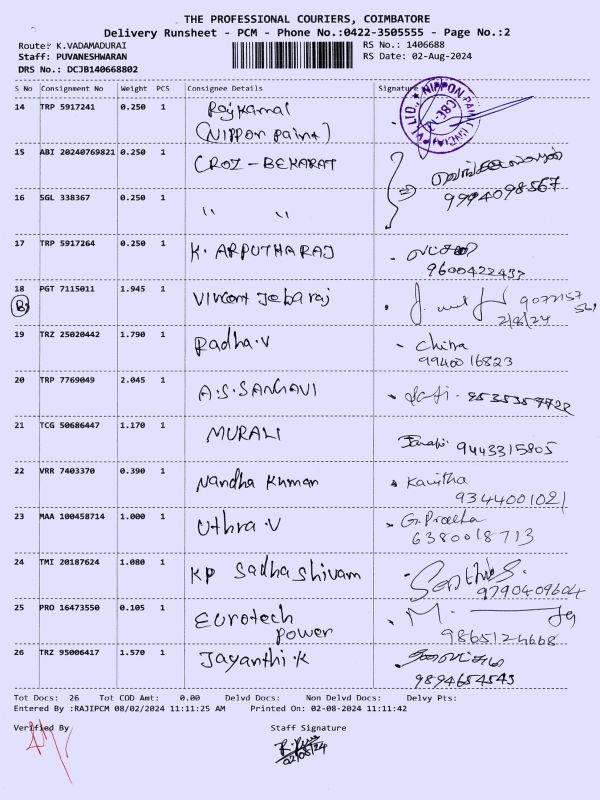 THE PROFESSIONAL COURIERS, COIMBATORE
Delivery Runsheet - PCM - Phone No.:0422-3505555 - Page No.:2
Route: K.VADAMADURAI RS No.: 1406688
Staff: PUVANESHWARAN RS Date: 02-Aug-2024
DRS No.: DCJB140668802
S No Consignment No Weight PCS Consignee Details Signature
14 TRP 5917241 0.250 1 Rajkamal
(Nippon paint)
15 ABI 20240769821 0.250 1 CROZ - BEKARAT
9994098567
16 SGL 338367 0.250 1 " "
17 TRP 5917264 0.250 1 K. ARPUTHARAJ
9600422437
18 PGT 7115011 1.945 1 Vincent Jebaraj 9072157
2/8/24
19 TRZ 25020442 1.790 1 Radha.V Chitra
9940016823
20 TRP 7769049 2.045 1 A.S.SANGAVI
21 TCG 50686447 1.170 1 MURALI 9443315805
22 VRR 7403370 0.390 1 Nandha Kumar Kavitha
9344001021
23 MAA 100458714 1.000 1 Uthra.V G. Preetha
6380018713
24 TMI 20187624 1.080 1 KP Sadhashivam
9790409604
25 PRO 16473550 0.105 1 Eurotech
power M.
9865124668
26 TRZ 95006417 1.570 1 Jayanthi.K
9894654543
Tot Docs: 26 Tot COD Amt: 0.00 Delvd Docs: Non Delvd Docs: Delvy Pts:
Entered By :RAJIPCM 08/02/2024 11:11:25 AM Printed On: 02-08-2024 11:11:42
Verified By Staff Signature
02/08/24